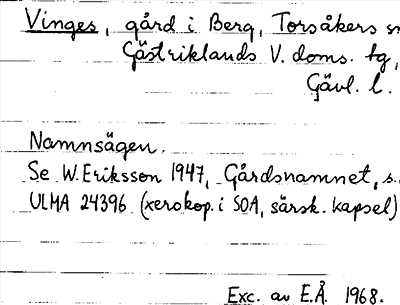 Vinges, gård i Berg, Torsåkers sn
Gästriklands V. doms. tg,
Gävl. l.
Namnsägen.
Se W. Eriksson 1947, Gårdsnamnet, s.
ULMA 24396 (xerokop. i SOA, särsk. kapsel)
Exc. av E.Å. 1968.